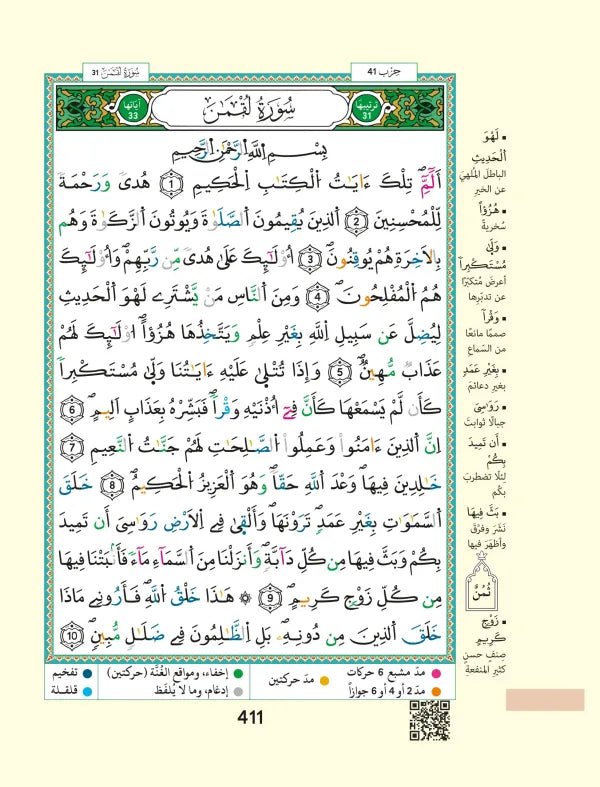 حِزْب 41
سُورَةُ لُقْمَٰنَ 31
ترتيبها 31
سُورَةُ لُقْمَٰنَ
آيَاتها 33
بِسْمِ اِللَّهِ اِلرَّحْمَٰنِ اِلرَّحِيمِ
أَلَٓمِّٓۖ تِلْكَ ءَايَٰتُ اُلْكِتَٰبِ اِلْحَكِيمِ 1 هُدىٗ وَرَحْمَةٗ
لِّلْمُحْسِنِينَ 2 اَلذِينَ يُقِيمُونَ اَلصَّلَوٰةَ وَيُوتُونَ اَلزَّكَوٰةَ وَهُم
بِالَاخِرَةِ هُمْ يُوقِنُونَۖ 3 أُوْلَٰٓئِكَ عَلَىٰ هُدىٗ مِّن رَّبِّهِمْۖ وَأُوْلَٰٓئِكَ
هُمُ اُلْمُفْلِحُونَۖ 4 وَمِنَ اَلنَّاسِ مَنْ يَّشْتَرِے لَهْوَ اَلْحَدِيثِ
لِيُضِلَّ عَن سَبِيلِ اِللَّهِ بِغَيْرِ عِلْمٖ وَيَتَّخِذُهَا هُزُؤاًۖ اُوْلَٰٓئِكَ لَهُمْ
عَذَابٞ مُّهِينٞۖ 5 وَإِذَا تُتْلَىٰ عَلَيْهِ ءَايَٰتُنَا وَلَّىٰ مُسْتَكْبِراٗ
كَأَن لَّمْ يَسْمَعْهَا كَأَنَّ فِےٓ أُذْنَيْهِ وَقْراٗۖ فَبَشِّرْهُ بِعَذَابٍ اَلِيمٍۖ 6
اِنَّ اَلذِينَ ءَامَنُواْ وَعَمِلُواْ اُلصَّٰلِحَٰتِ لَهُمْ جَنَّٰتُ اُلنَّعِيمِ 7
خَٰلِدِينَ فِيهَا وَعْدَ اَللَّهِ حَقّاٗۖ وَهُوَ اَلْعَزِيزُ اُلْحَكِيمُۖ 8 خَلَقَ
اَلسَّمَٰوَٰتِ بِغَيْرِ عَمَدٖ تَرَوْنَهَاۖ وَأَلْقَىٰ فِے اِلَارْضِ رَوَٰسِيَ أَن تَمِيدَ
بِكُمْ وَبَثَّ فِيهَا مِن كُلِّ دَآبَّةٖۖ وَأَنزَلْنَا مِنَ اَلسَّمَآءِ مَآءٗ فَأَنۢبَتْنَا فِيهَا
مِن كُلِّ زَوْجٖ كَرِيمٍۖ 9 ۞ هَٰذَا خَلْقُ اُللَّهِۖ فَأَرُونِے مَاذَا
خَلَقَ اَلذِينَ مِن دُونِهِۦۖ بَلِ اِلظَّٰلِمُونَ فِے ضَلَٰلٖ مُّبِينٖۖ 10
▪ لَهْوَ
اَلْحَدِيثِ
الباطلَ المُلْهِيَ
عن الخيرِ
▪ هُزُؤاً
سُخريةً
▪ وَلَّىٰ
مُسْتَكْبِراٗ
أعرضَ مُتكبّرًا
عن تدبّرِها
▪ وَقْراٗ
صممًا مانعًا
من السّماعِ
▪ بِغَيْرِ عَمَدٖ
بغيرِ دعائمَ
▪ رَوَٰسِيَ
جبالًا ثوابتَ
▪ أَن تَمِيدَ
بِكُمْ
لِئلّا تضطربَ
بكُم
▪ بَثَّ فِيهَا
نشرَ وفرّقَ
وأظهرَ فيها
ثُمُنٌ
▪ زَوْجٖ
كَرِيمٍ
صنفٍ حسنٍ
كثيرِ المنفعةِ
مدّ مشبع 6 حركات
مدّ 2 أو 4 أو 6 جوازاً
مدّ حركتين
إخفاء، ومواقع الغُنَّة (حركتين)
إدغام، وما لا يُلفَظ
تفخيم
قلقلة
411